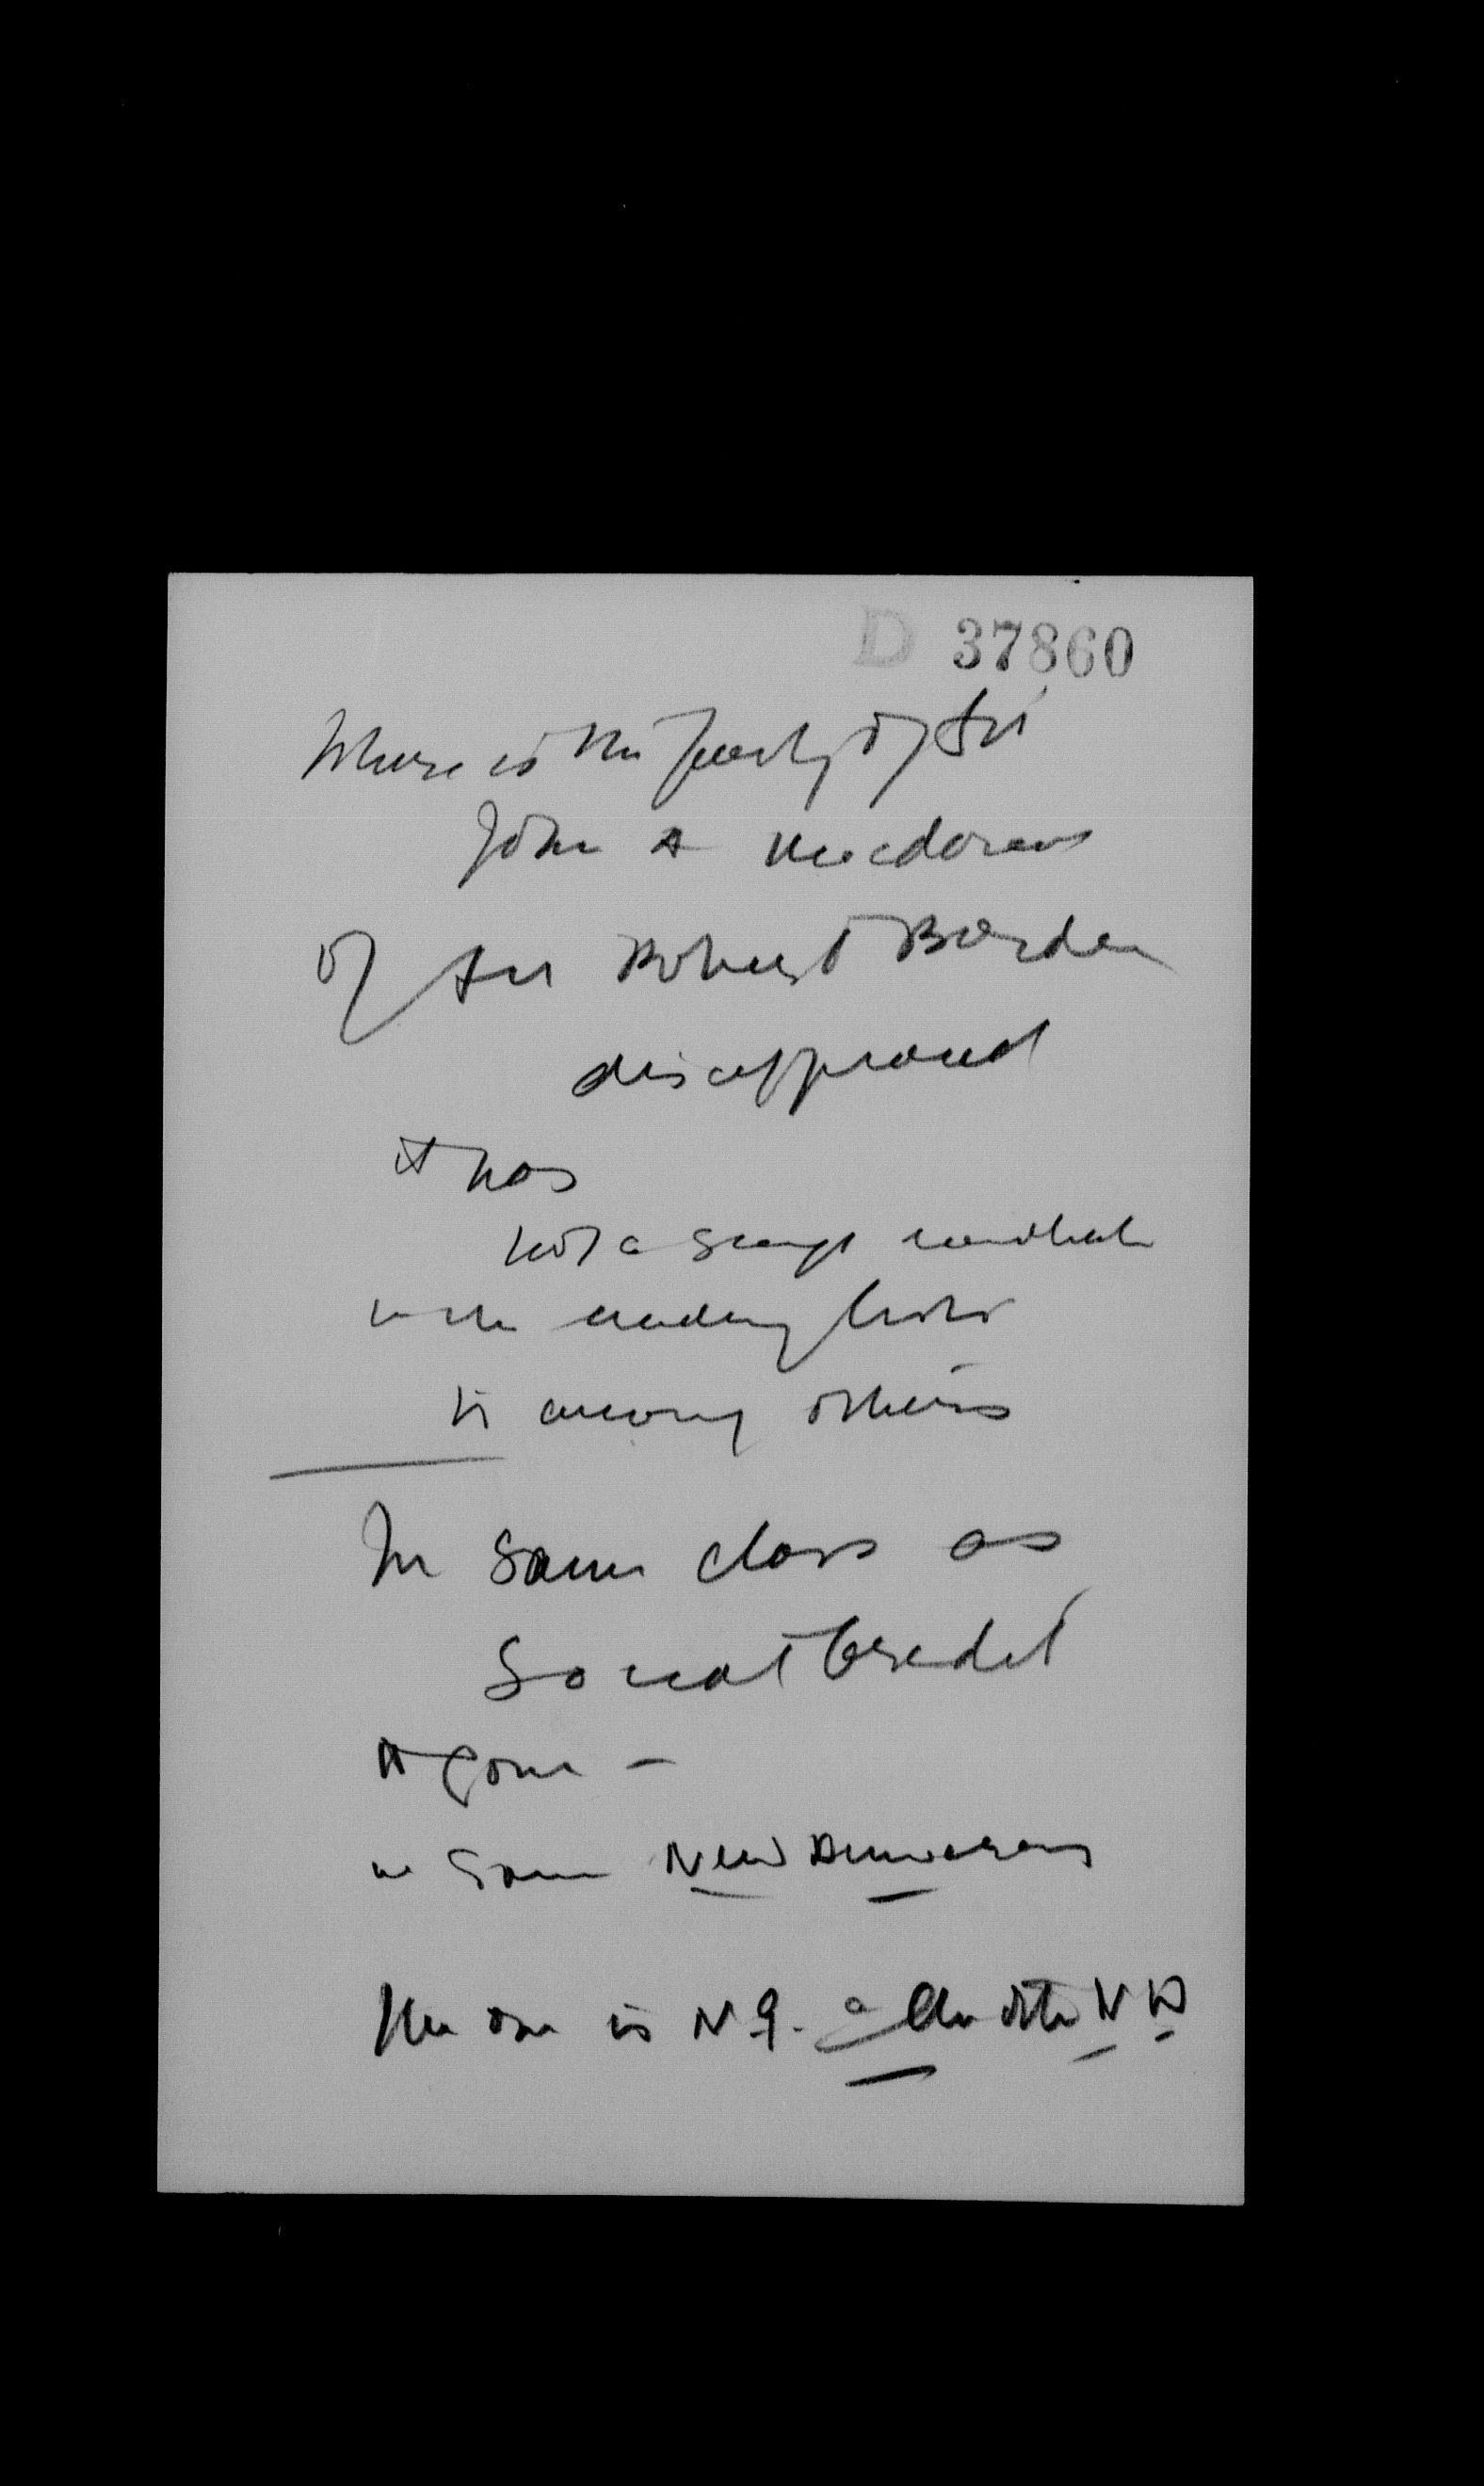 D 37860
Where is the party of Sir
John A Macdonald
of Sir Robert Borden
disappeared
it has
not a single candidate
in the running
is among others
In same class as
Social Credit
it gone –
in same New Democracy
The one is N.G. – the other N D